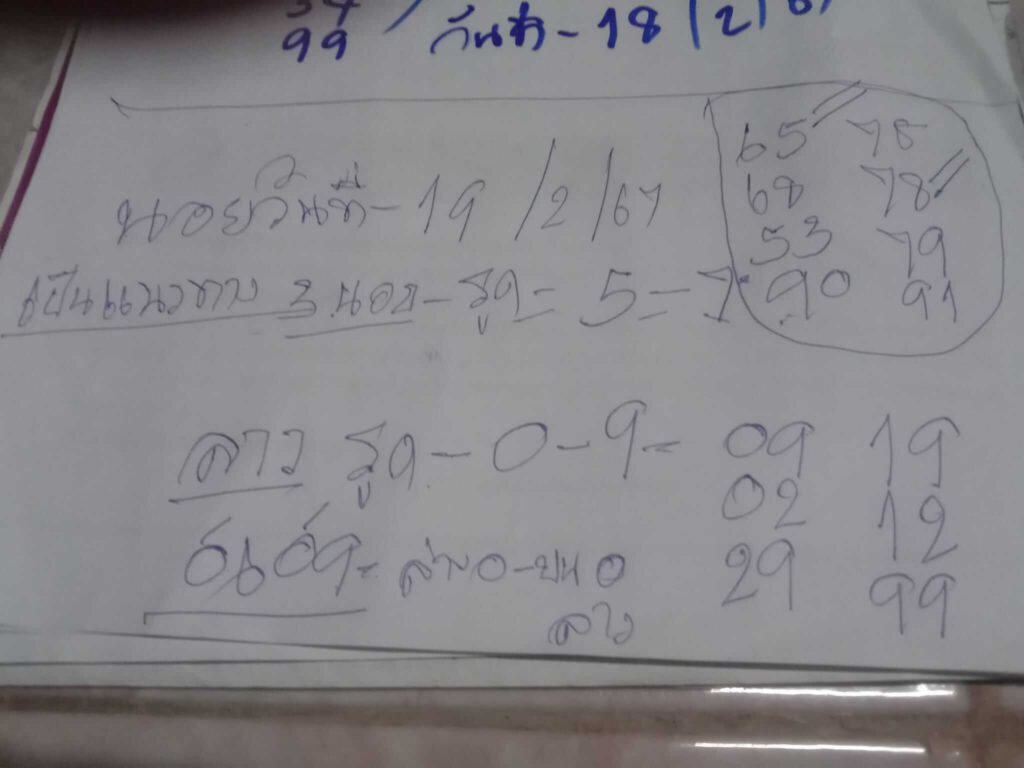 99 วันที่ - 18 /2/67
นอยวันที่ - 19 /2/67
เป็นแนวทาง 3 นอย - รูด = 5 - 7
65 78
68 78
53 79
90 91
ลาว รูด - 0 - 9 = 09 19
02 12
ล่าง 0 - บน 0 29 99
ลาว